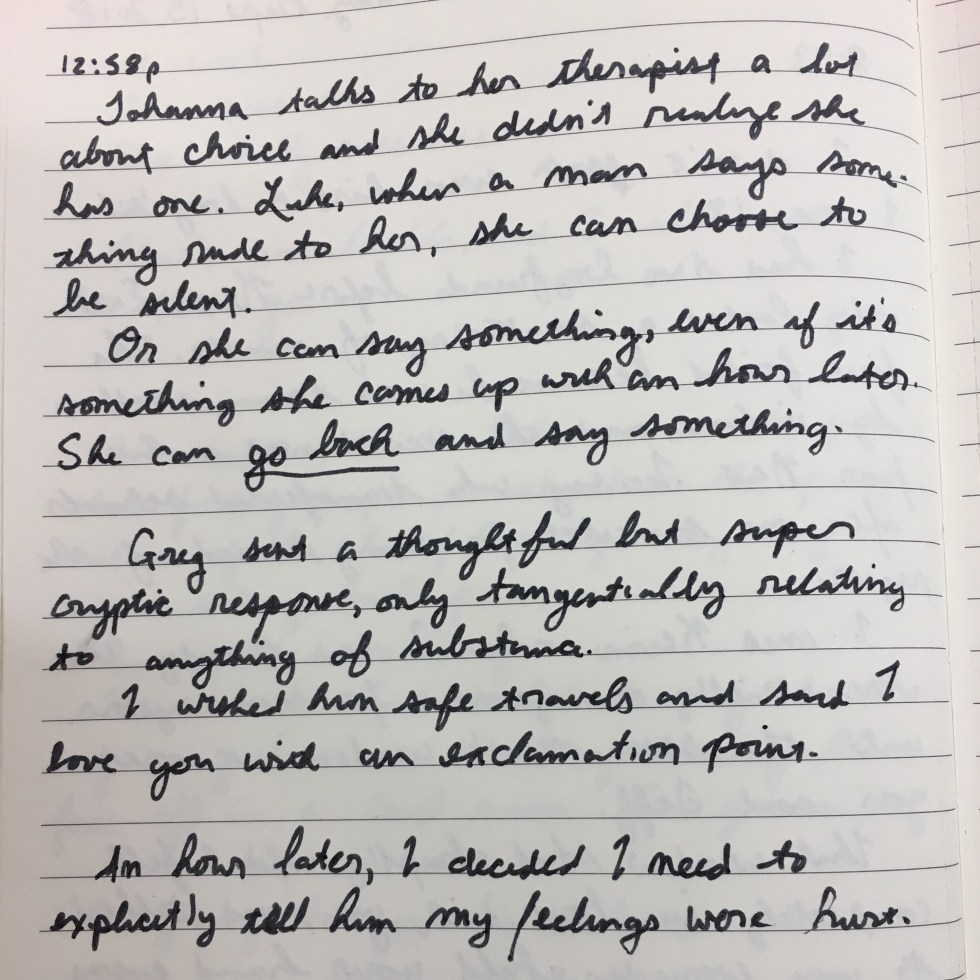 12:58p
Johanna talks to her therapist a lot
about choice and she didn't realize she
has one. Like, when a man says some-
thing rude to her, she can choose to
be silent.
Or she can say something, even if it's
something she comes up with an hour later.
She can go back and say something.
Greg sent a thoughtful but super
cryptic response, only tangentially relating
to anything of substance.
I wished him safe travels and said I
love you with an exclamation point.
An hour later, I decided I need to
explicitly tell him my feelings were hurt.